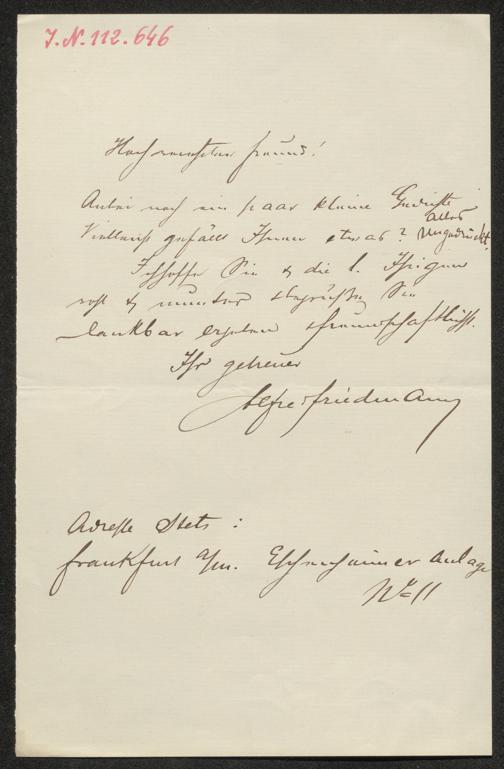 I.N. 112.646
Hochverehrter Freund!
Anbei noch ein paar kleine Gedichte
alles
Vielleicht gefällt Ihnen etwas? Ungedruckt.
Ich hoffe Sie & die l. Ihrigen
& munter Sie
dankbar ergeben freundschaftlichst.
Ihr getreuer
Alfred Friedmann
Adresse stets:
Frankfurt a/m. Eschenheimer Anlage
No 11